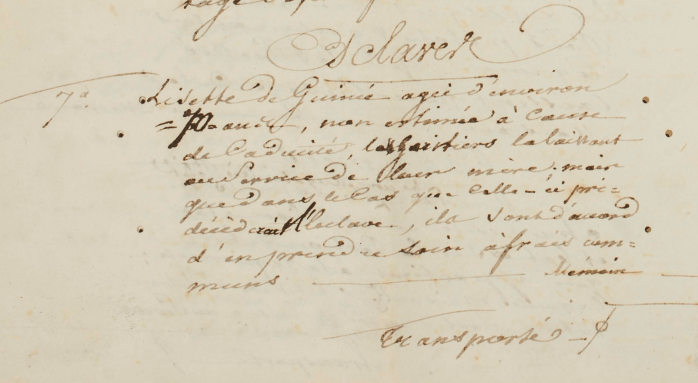 Esclaves
7° Lisette de Guinée agée d'environ
=70= ans, non estimée à Cause
de Caducité, les héritiers la laissant
au Service de leur mère; mais
que dans le Cas que Celle-ci pré-
décéderait l'Esclave, ils sont d'accord
d'en prendre soin à frais com-
muns Mémoire
Transporté